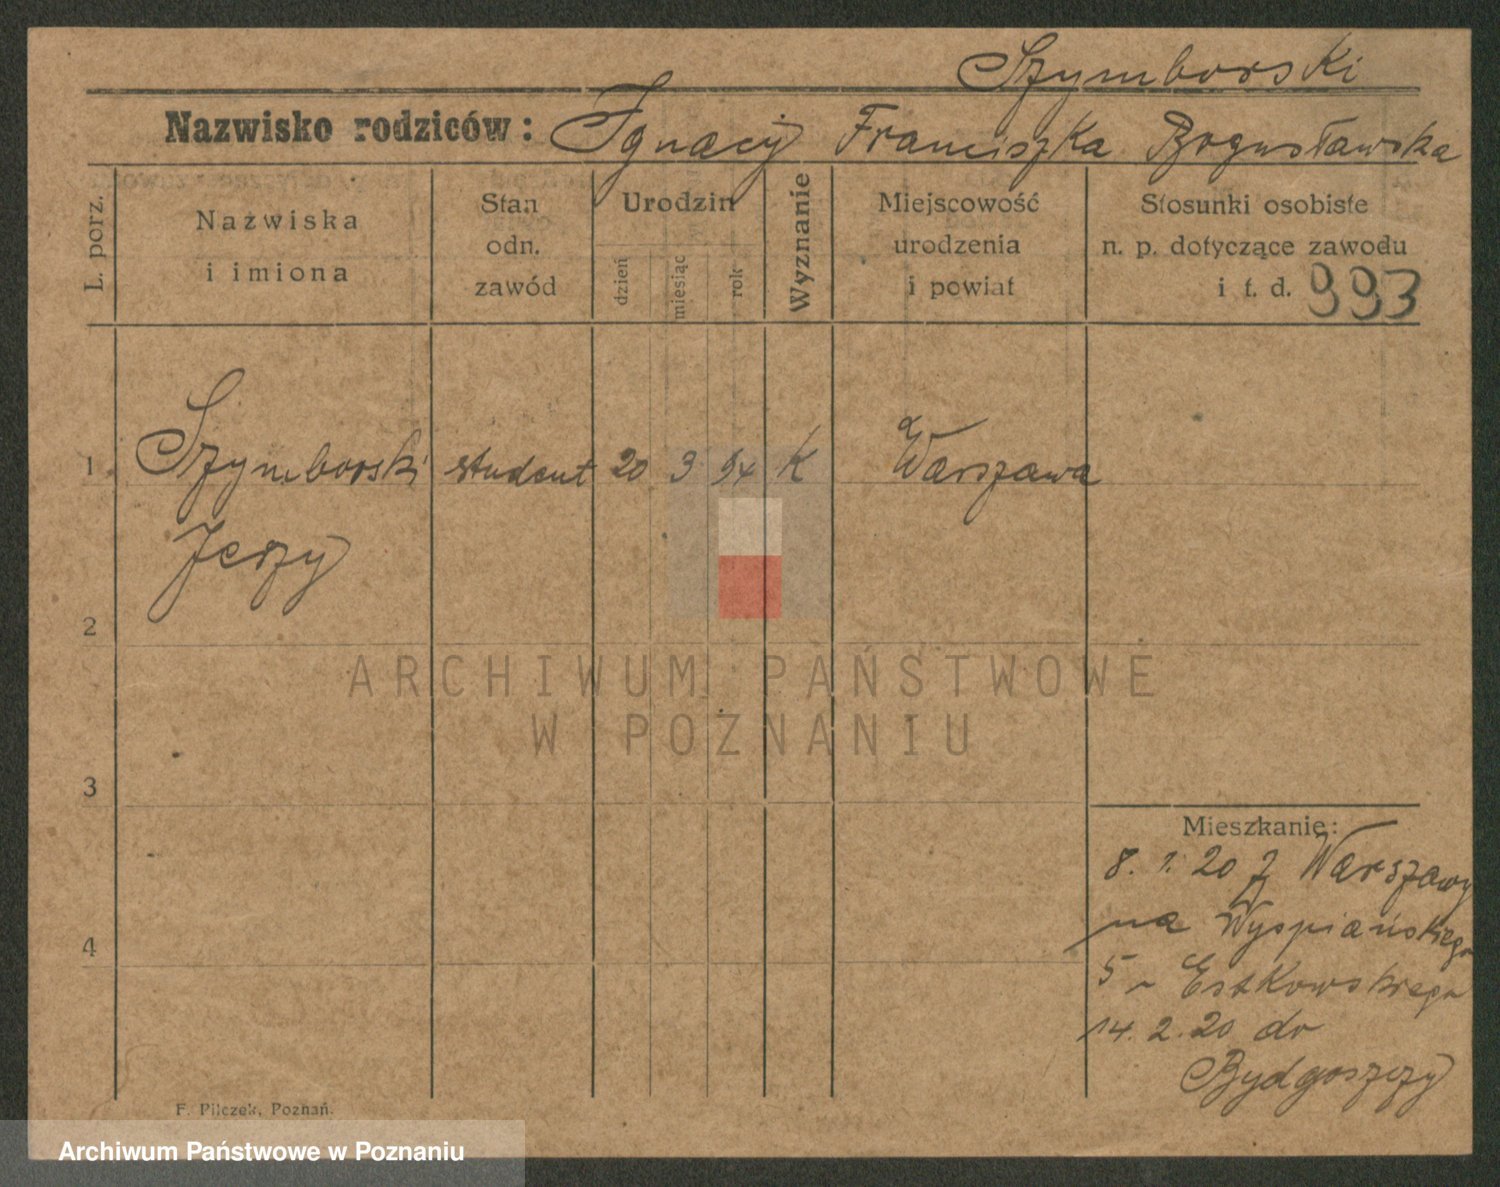 Szymborski
Nazwisko rodziców: Ignacy Franciszka Bogusławska
L. porz.
Nazwiska
i imiona
Stan
odn.
zawód
Urodzin
dzień
miesiąc
rok
Wyznanie
Miejscowość
urodzenia
i powiat
Stosunki osobiste
n. p. dotyczące zawodu
i t. d. 993
1 Szymborski student 20 3 94 K Warszawa
Jerzy
2
ARCHIWUM PAŃSTWOWE
W POZNANIU
3
Mieszkanie:
8. 1. 20 z Warszawy
na Wyspiańskiego
4
5 Estkowskiego
14. 2. 20 do
Bydgoszczy
F. Pilczek, Poznań.
Archiwum Państwowe w Poznaniu